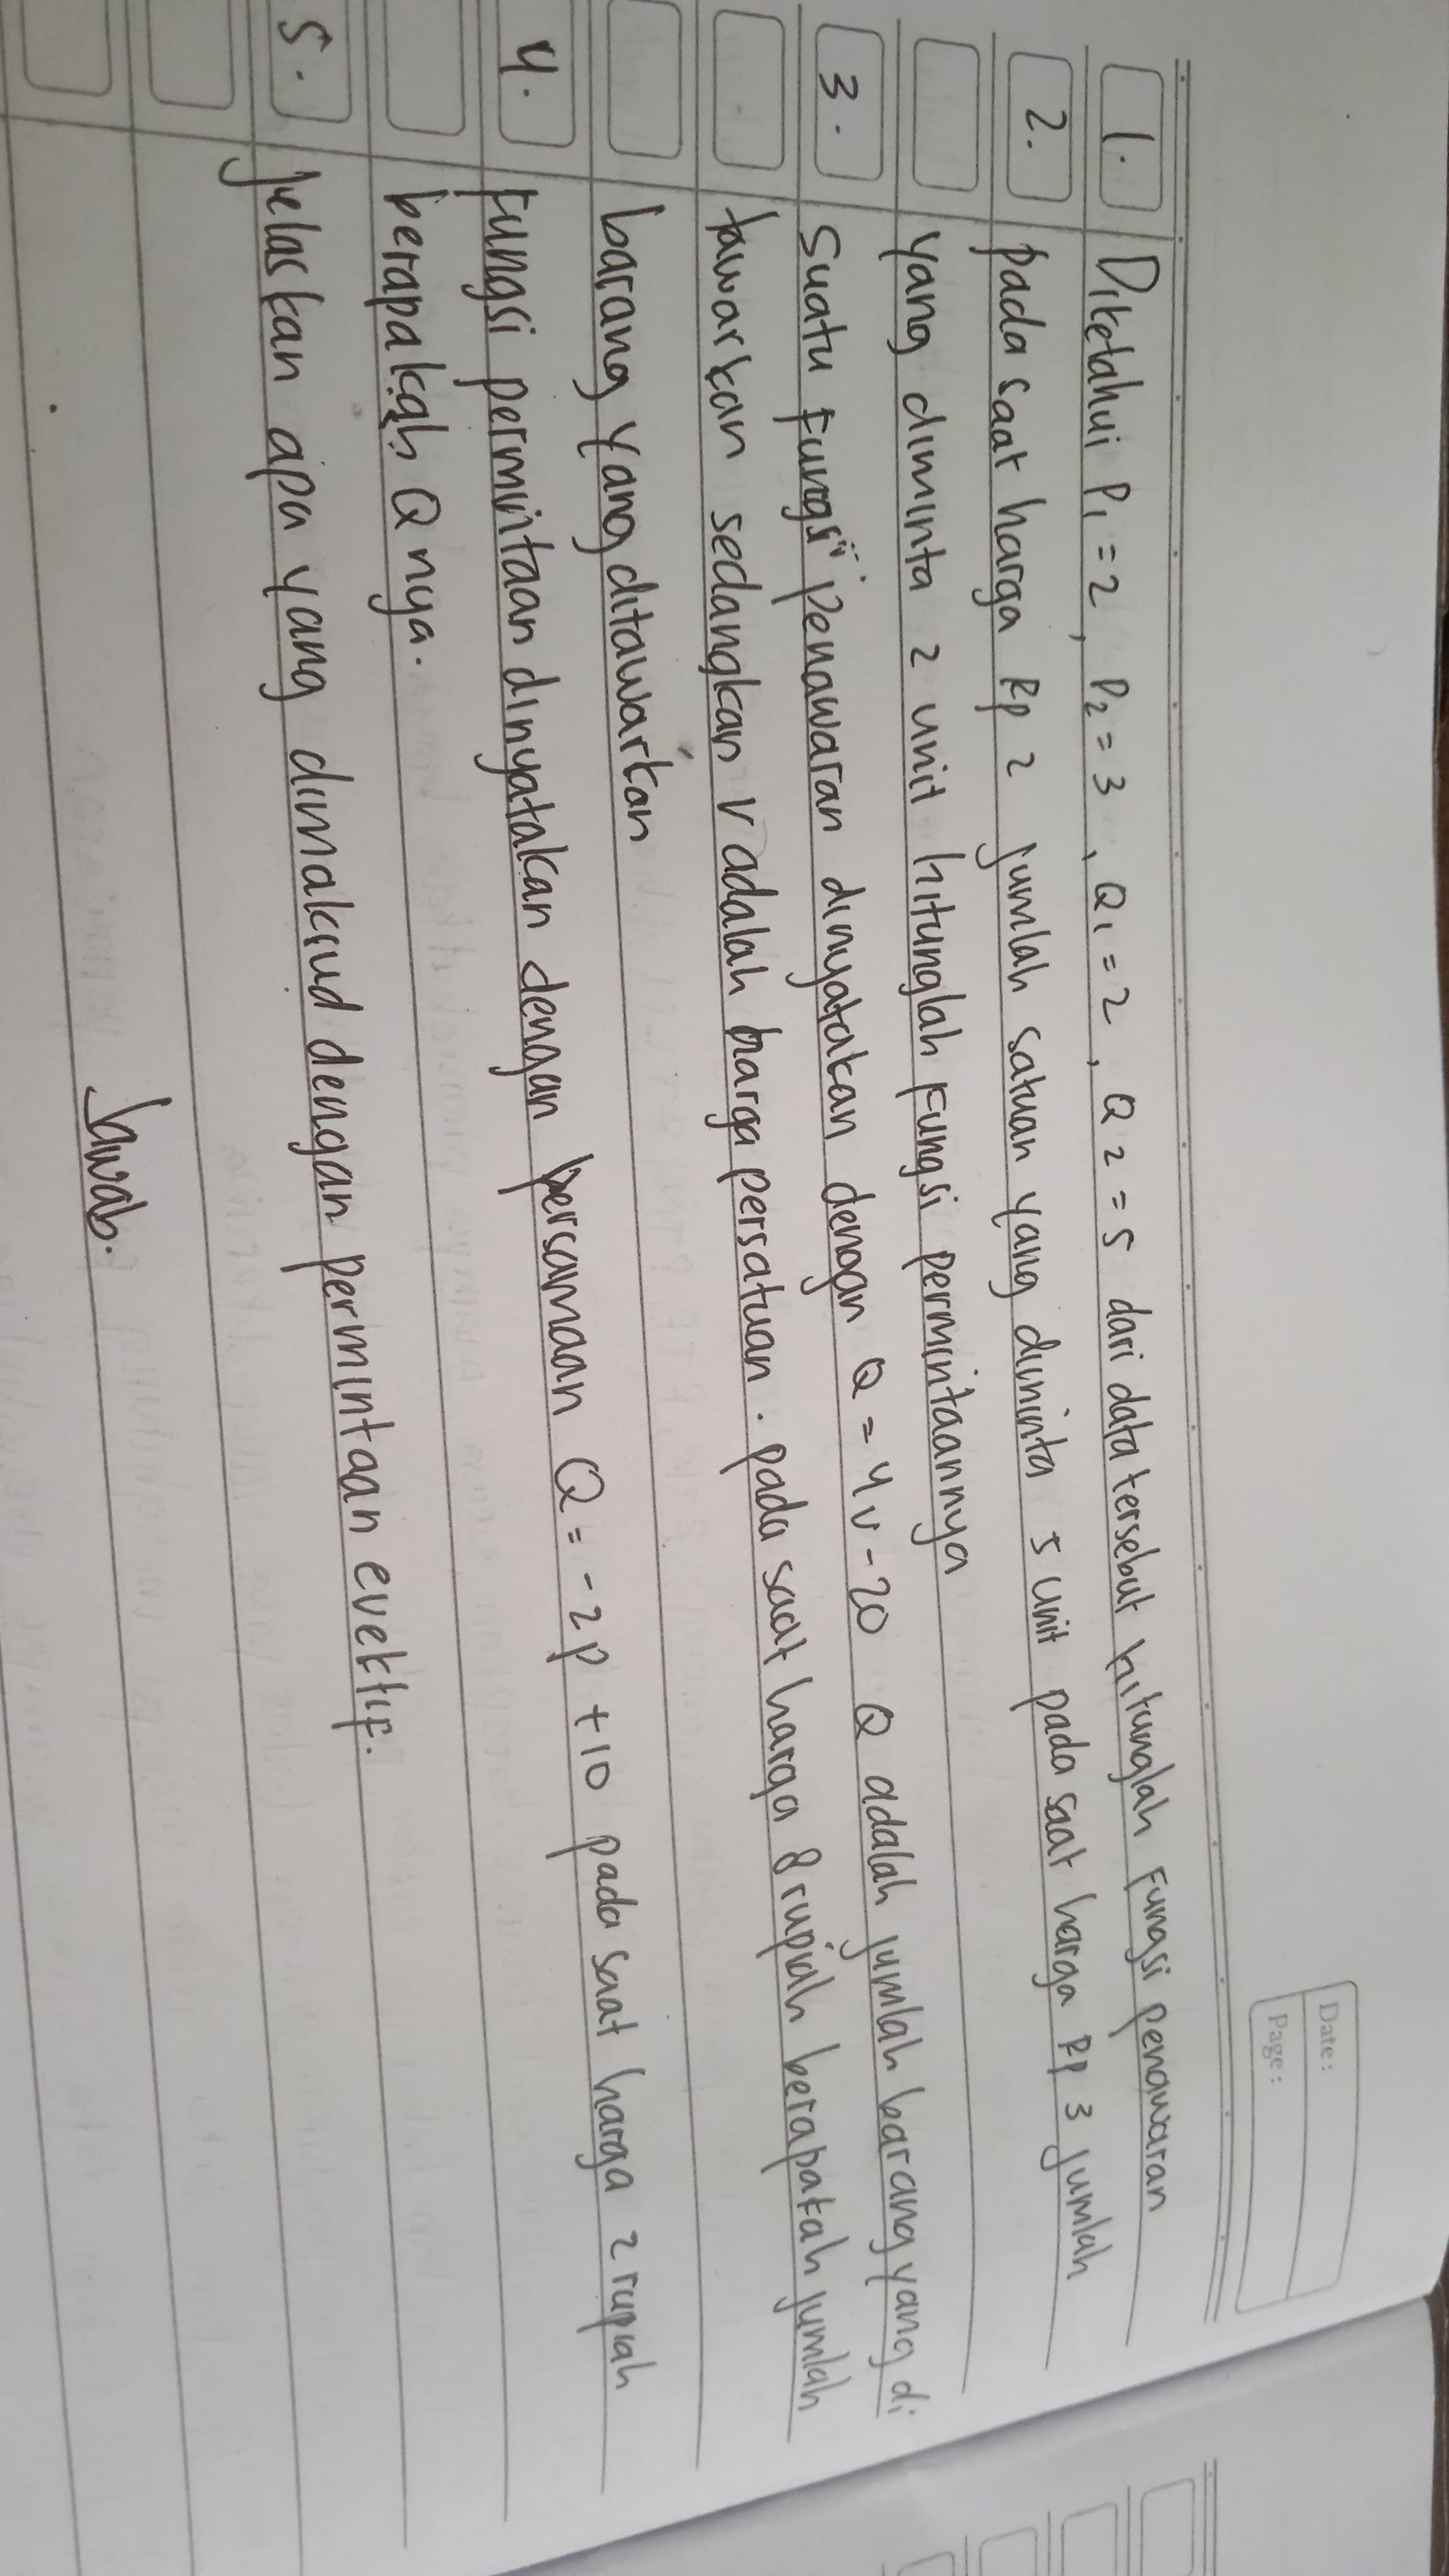 Date:
Page:
1. Diketahui P1 = 2, P2 = 3, Q1 = 2, Q2 = 5 dari data tersebut hitunglah Fungsi penawaran
2. pada saat harga Rp 2 jumlah satuan yang diminta 5 unit pada saat harga Rp 3 jumlah
yang diminta 2 unit hitunglah Fungsi permintaannya
3. Suatu Fungsi penawaran dinyatakan dengan Q = 4v - 20 Q adalah jumlah barang yang di
tawarkan sedangkan v adalah harga persatuan. pada saat harga 8 rupiah berapakah jumlah
barang yang ditawarkan
4. Fungsi permintaan dinyatakan dengan persamaan Q = -2p + 10 pada saat harga 2 rupiah
berapakah Q nya.
5. jelaskan apa yang dimaksud dengan permintaan evektif.
Jawab.